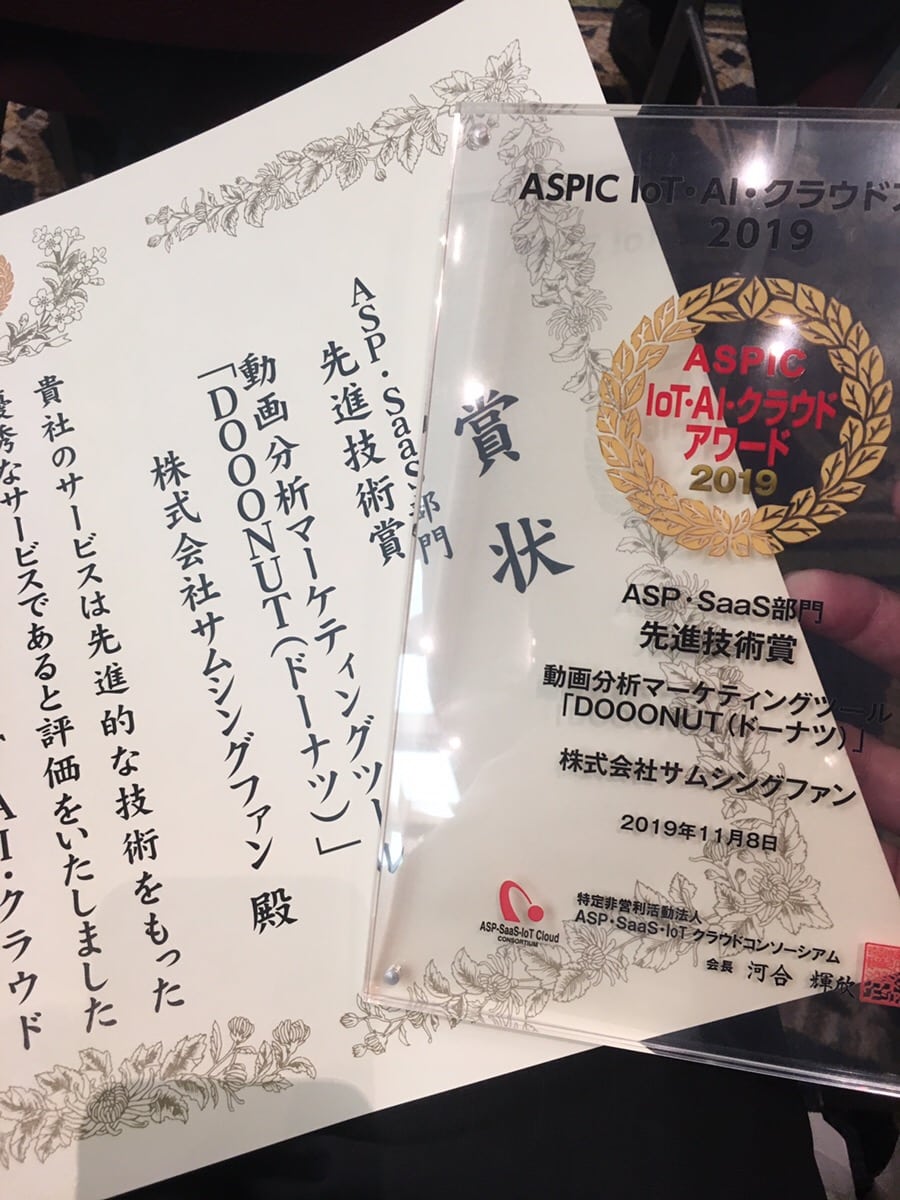 賞状
ASP・SaaS部門
先進技術賞
動画分析マーケティングツール
「DOOONUT(ドーナツ)」
株式会社サムシングファン 殿
貴社のサービスは先進的な技術をもった
優秀なサービスであると評価をいたしました
AI・クラウド
ASPIC IoT・AI・クラウドア
2019
ASPIC
IoT・AI・クラウド
アワード
2019
ASP・SaaS部門
先進技術賞
動画分析マーケティングツール
「DOOONUT(ドーナツ)」
株式会社サムシングファン
2019年11月8日
ASP-SaaS-IoT Cloud
CONSORTIUM
特定非営利活動法人
ASP・SaaS・IoT クラウドコンソーシアム
会長 河合 輝欣